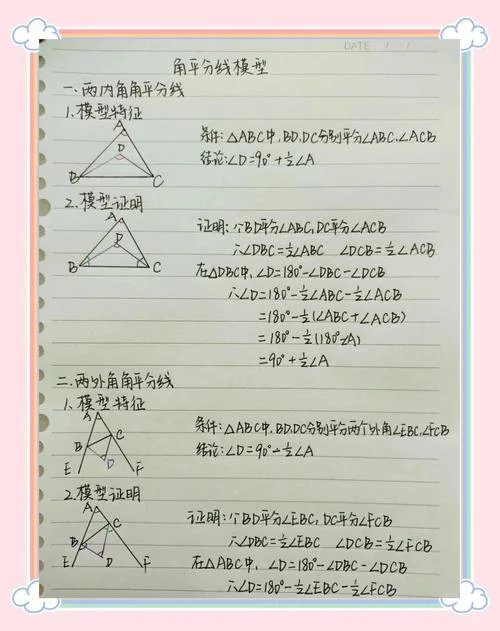 DATE / /
角平分线模型
一、两内角角平分线
1、模型特征
A
D
B
C
条件：△ABC中，BD、DC分别平分∠ABC、∠ACB
结论：∠D=90°+½∠A
2、模型证明
A
D
B
C
证明：∵BD平分∠ABC，DC平分∠ACB
∴∠DBC=½∠ABC ∠DCB=½∠ACB
在△DBC中，∠D=180°-∠DBC-∠DCB
∴∠D=180°-½∠ABC-½∠ACB
=180°-½(∠ABC+∠ACB)
=180°-½(180°-∠A)
=90°+½∠A
二、两外角角平分线
1、模型特征
A
B
C
D
E
F
条件：△ABC中，BD、DC分别平分两个外角∠EBC、∠FCB
结论：∠D=90°-½∠A
2、模型证明
A
B
C
D
E
F
证明：∵BD平分∠EBC，DC平分∠FCB
∴∠DBC=½∠EBC ∠DCB=½∠FCB
在△ABC中，∠D=180°-∠DBC-∠DCB
∴∠D=180°-½∠EBC-½∠FCB